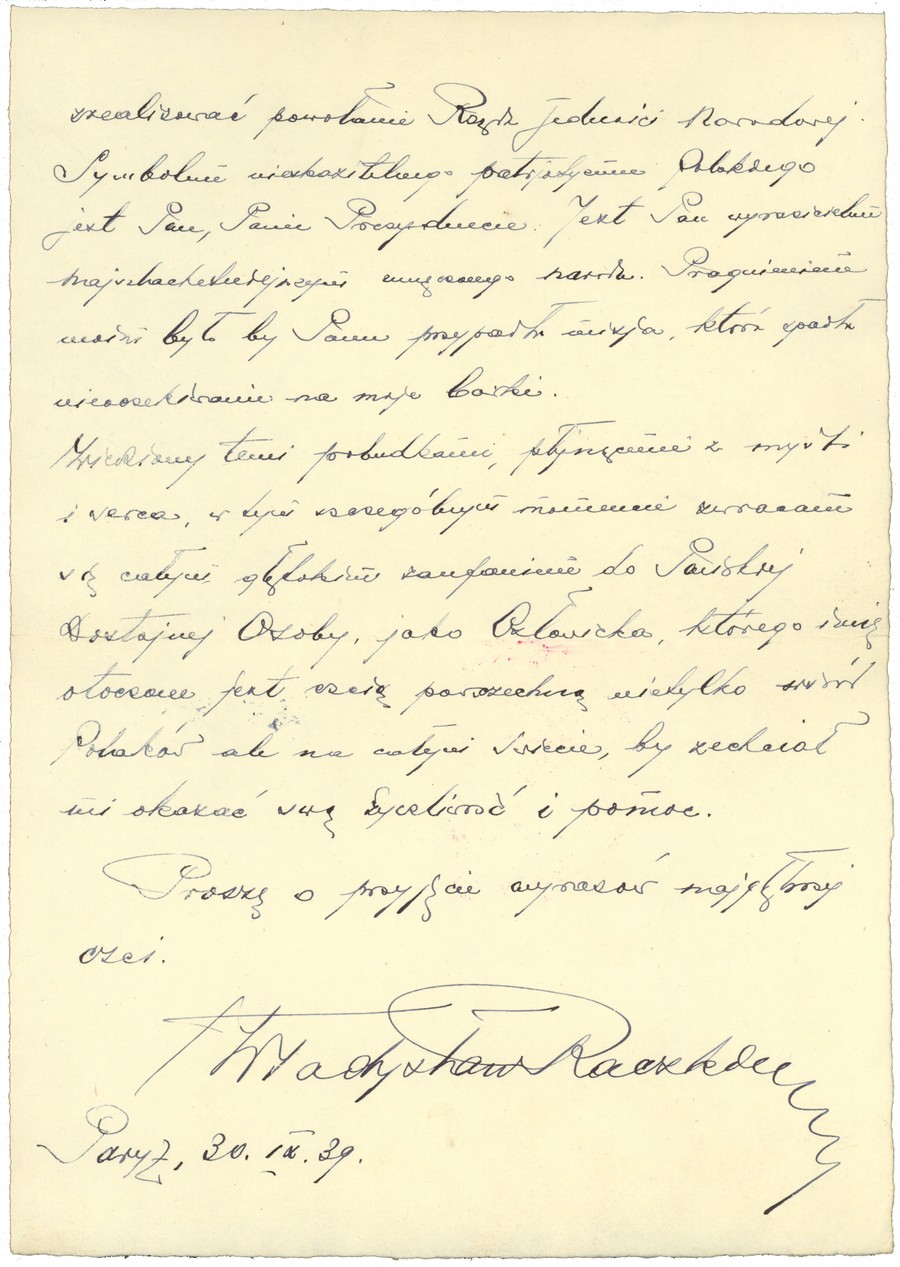 zrealizować powołanie Rządu Jedności Narodowej.
Symbolem nieskazitelnego patrjotyzmu Polskiego
jest Pan, Panie Prezydencie. Jest Pan wyrazicielem
najszlachetniejszym umęczonego narodu. Pragnieniem
moim było by Panu przypadła misja, która spadła
nieoczekiwanie na moje barki.
Wiedziony temi pobudkami, płynącemi z myśli
i serca, w tym szczególnym momencie zwracam
się całym głębokiem zaufaniem do Pańskiej
Dostojnej Osoby, jako Człowieka, którego imię
otoczone jest czcią powszechną nietylko wśród
Polaków ale na całym świecie, by zechciał
mi okazać swą życzliwość i pomoc.
Proszę o przyjęcie wyrazów najgłębszej
czci.
Władysław Raczkiewicz
Paryż, 30. IX. 39.